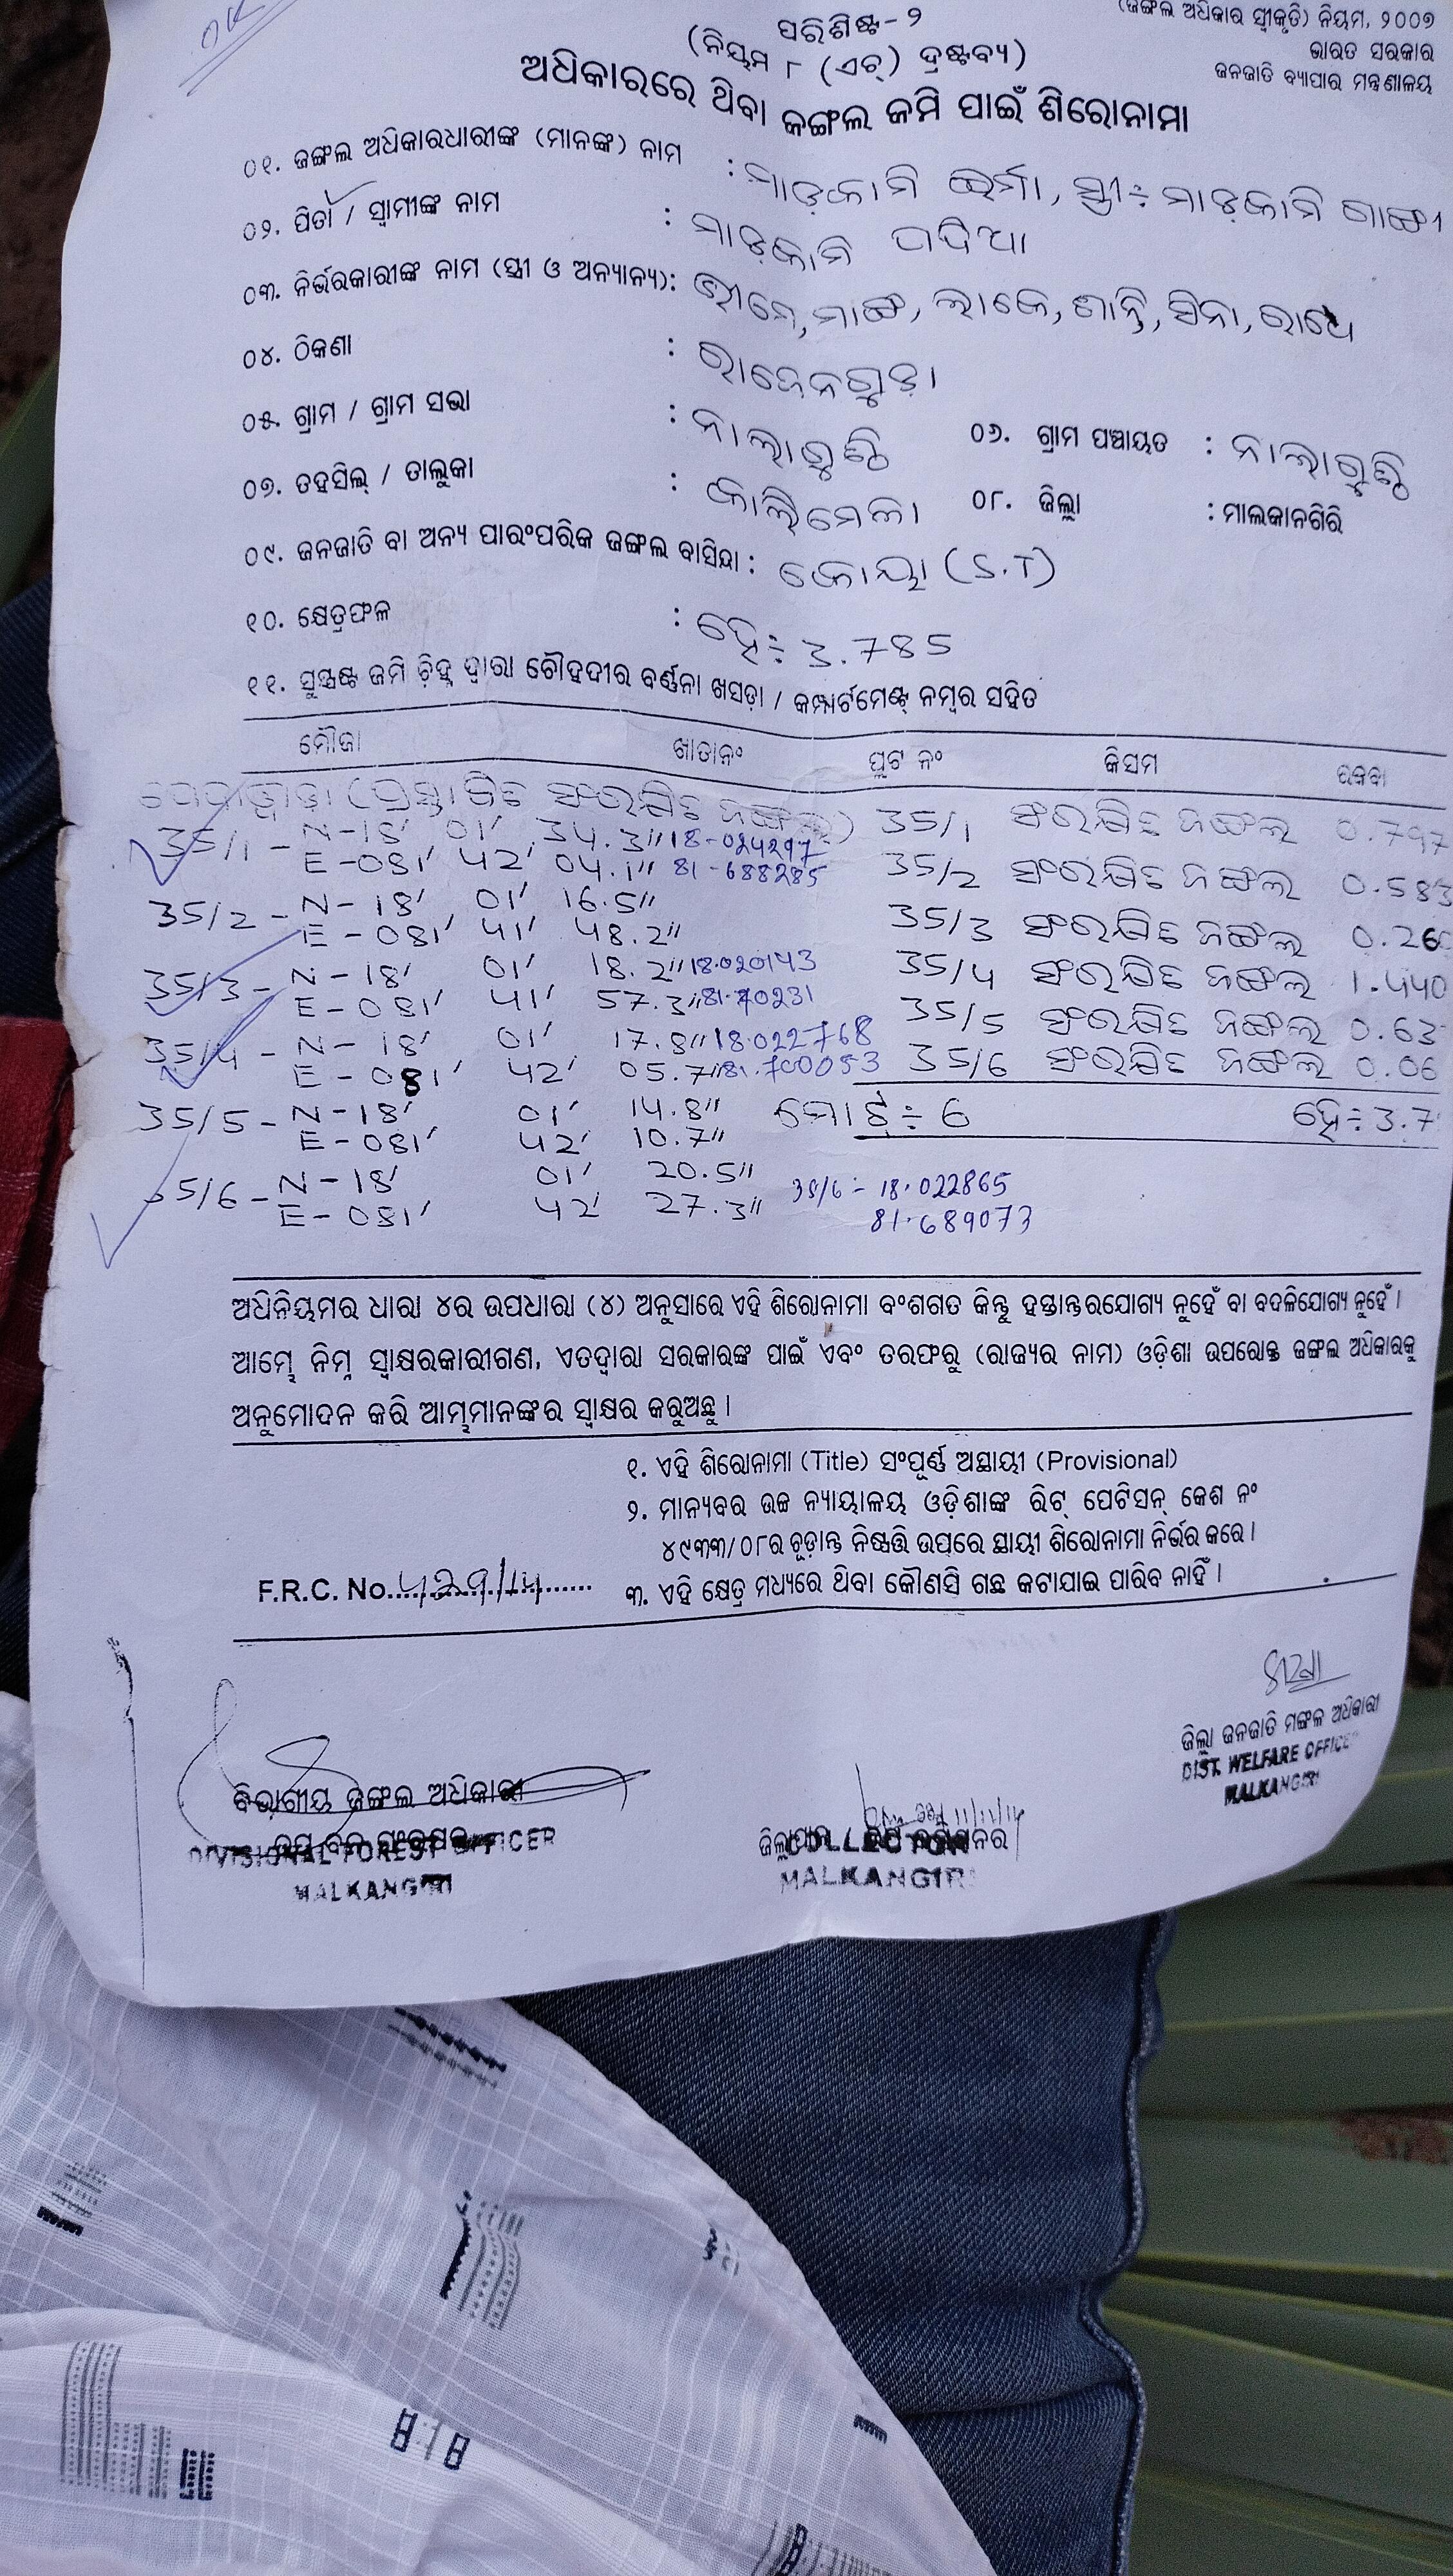 OK
(ଜଙ୍ଗଲ ଅଧିକାର ସ୍ୱୀକୃତି) ନିୟମ, ୨୦୦୭
ଭାରତ ସରକାର
ଜନଜାତି ବ୍ୟାପାର ମନ୍ତ୍ରଣାଳୟ
ପରିଶିଷ୍ଟ-୨
(ନିୟମ ୮ (ଏଚ୍) ଦ୍ରଷ୍ଟବ୍ୟ)
ଅଧିକାରରେ ଥିବା ଜଙ୍ଗଲ ଜମି ପାଇଁ ଶିରୋନାମା
୦୧. ଜଙ୍ଗଲ ଅଧିକାରଧାରୀଙ୍କ (ମାନଙ୍କ) ନାମ : ମାଡ଼କାମି ଇର୍ମା, ସ୍ତ୍ରୀ÷ ମାଡ଼କାମି
୦୨. ପିତା / ସ୍ୱାମୀଙ୍କ ନାମ : ମାଡ଼କାମି
୦୩. ନିର୍ଭରକାରୀଙ୍କ ନାମ (ସ୍ତ୍ରୀ ଓ ଅନ୍ୟାନ୍ୟ): ଭୀମେ, ମାଙ୍ଗ, ଲାକେ, ଶାନ୍ତି, ସିନା, ରାଧେ
୦୪. ଠିକଣା :
୦୫. ଗ୍ରାମ / ଗ୍ରାମ ସଭା : ନାଲାଗୁଣ୍ଠି ୦୬. ଗ୍ରାମ ପଞ୍ଚାୟତ : ନାଲାଗୁଣ୍ଠି
୦୭. ତହସିଲ୍ / ତାଲୁକା : କାଲିମେଳା ୦୮. ଜିଲ୍ଲା : ମାଲକାନଗିରି
୦୯. ଜନଜାତି ବା ଅନ୍ୟ ପାରଂପରିକ ଜଙ୍ଗଲ ବାସିନ୍ଦା : କୋୟା (S.T)
୧୦. କ୍ଷେତ୍ରଫଳ : ହେ÷ 3.785
୧୧. ସୁସ୍ପଷ୍ଟ ଜମି ଚ଼ିହ୍ନ ଦ୍ୱାରା ଚୌହଦୀର ବର୍ଣ୍ଣନା ଖସଡ଼ା / କମ୍ପାର୍ଟମେଣ୍ଟ୍ ନମ୍ବର ସହିତ
ମୌଜା ଖାତାନଂ ପ୍ଲଟ ନଂ କିସମ ରକବା
(ପ୍ରସ୍ତାବିତ ସଂରକ୍ଷିତ ଜଙ୍ଗଲ) 35/1 ସଂରକ୍ଷିତ ଜଙ୍ଗଲ 0.797
35/1 - N-18' 01' 34.3" 18-024297
E-081' 42' 04.1" 81-688285 35/2 ସଂରକ୍ଷିତ ଜଙ୍ଗଲ 0.583
35/2 - N-18' 01' 16.5"
E-081' 41' 48.2" 35/3 ସଂରକ୍ଷିତ ଜଙ୍ଗଲ 0.26
35/3 - N-18' 01' 18.2" 18.020143 35/4 ସଂରକ୍ଷିତ ଜଙ୍ଗଲ 1.440
E-081' 41' 57.3" 81.70231 35/5 ସଂରକ୍ଷିତ ଜଙ୍ଗଲ 0.63
35/4 - N-18' 01' 17.8" 18.022768
E-081' 42' 05.7" 81.700053 35/6 ସଂରକ୍ଷିତ ଜଙ୍ଗଲ 0.06
35/5 - N-18' 01' 14.8" ମୋଟ÷ 6 ହେ÷3.7
E-081' 42' 10.7"
35/6 - N-18' 01' 20.5" 35/6 - 18.022865
E-081' 42' 27.3" 81.689073
ଅଧିନିୟମର ଧାରା ୪ର ଉପଧାରା (୪) ଅନୁସାରେ ଏହି ଶିରୋନାମା ବଂଶଗତ କିନ୍ତୁ ହସ୍ତାନ୍ତରଯୋଗ୍ୟ ନୁହେଁ ବା ବଦଳିଯୋଗ୍ୟ ନୁହେଁ ।
ଆମ୍ଭେ ନିମ୍ନ ସ୍ୱାକ୍ଷରକାରୀଗଣ, ଏତଦ୍ୱାରା ସରକାରଙ୍କ ପାଇଁ ଏବଂ ତରଫରୁ (ରାଜ୍ୟର ନାମ) ଓଡ଼ିଶା ଉପରୋକ୍ତ ଜଙ୍ଗଲ ଅଧିକାରକୁ
ଅନୁମୋଦନ କରି ଆମ୍ଭମାନଙ୍କର ସ୍ୱାକ୍ଷର କରୁଅଛୁ ।
୧. ଏହି ଶିରୋନାମା (Title) ସଂପୂର୍ଣ୍ଣ ଅସ୍ଥାୟୀ (Provisional)
୨. ମାନ୍ୟବର ଉଚ୍ଚ ନ୍ୟାୟାଳୟ ଓଡ଼ିଶାଙ୍କ ରିଟ୍ ପେଟିସନ୍ କେଶ ନଂ
୪୯୩୩/୦୮ର ଚୂଡ଼ାନ୍ତ ନିଷ୍ପତ୍ତି ଉପରେ ସ୍ଥାୟୀ ଶିରୋନାମା ନିର୍ଭର କରେ ।
F.R.C. No....429/14.......... ୩. ଏହି କ୍ଷେତ୍ର ମଧ୍ୟରେ ଥିବା କୌଣସି ଗଛ କଟାଯାଇ ପାରିବ ନାହିଁ ।
ଜିଲ୍ଲା ଜନଜାତି ମଙ୍ଗଳ ଅଧିକାରୀ
DIST. WELFARE OFFICER
MALKANGIRI
ବିଭାଗୀୟ ଜଙ୍ଗଲ ଅଧିକାରୀ
DIVISIONAL FOREST OFFICER
MALKANGIRI
COLLECTOR
MALKANGIRI